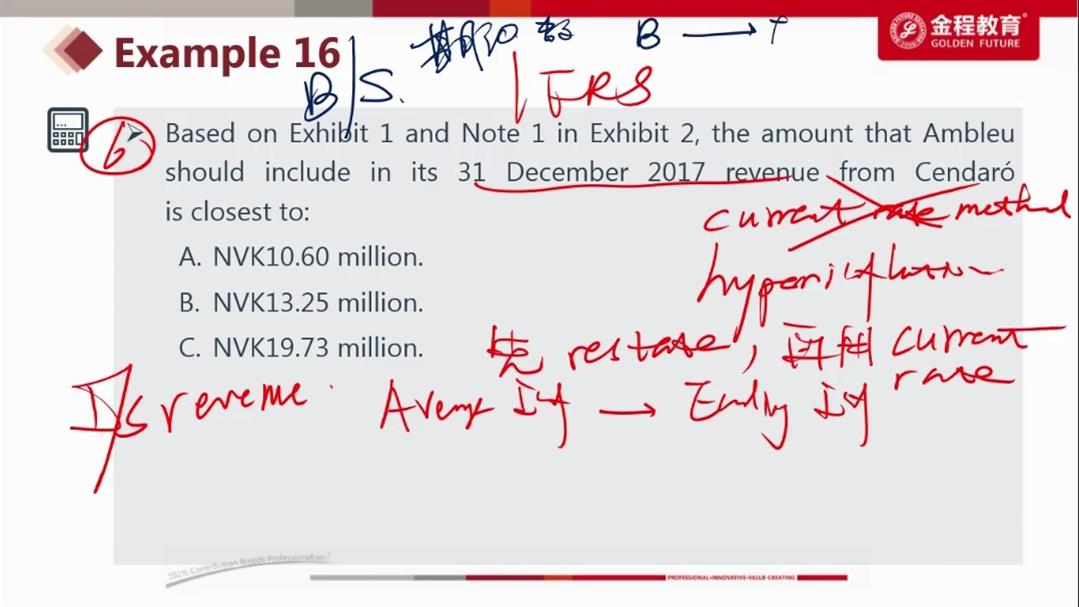 Example 16
期初数 B →
B/S.
IFRS
金程教育
GOLDEN FUTURE
6
Based on Exhibit 1 and Note 1 in Exhibit 2, the amount that Ambleu
should include in its 31 December 2017 revenue from Cendaró
is closest to:
current rate method
A. NVK10.60 million.
hyperinflation
B. NVK13.25 million.
C. NVK19.73 million.
先 restate, 再用 current
rate
I/S revenue. Average → Ending
101% Contribution Breeds Professionalism!
PROFESSIONAL•INNOVATIVE•VALUE-CREATING